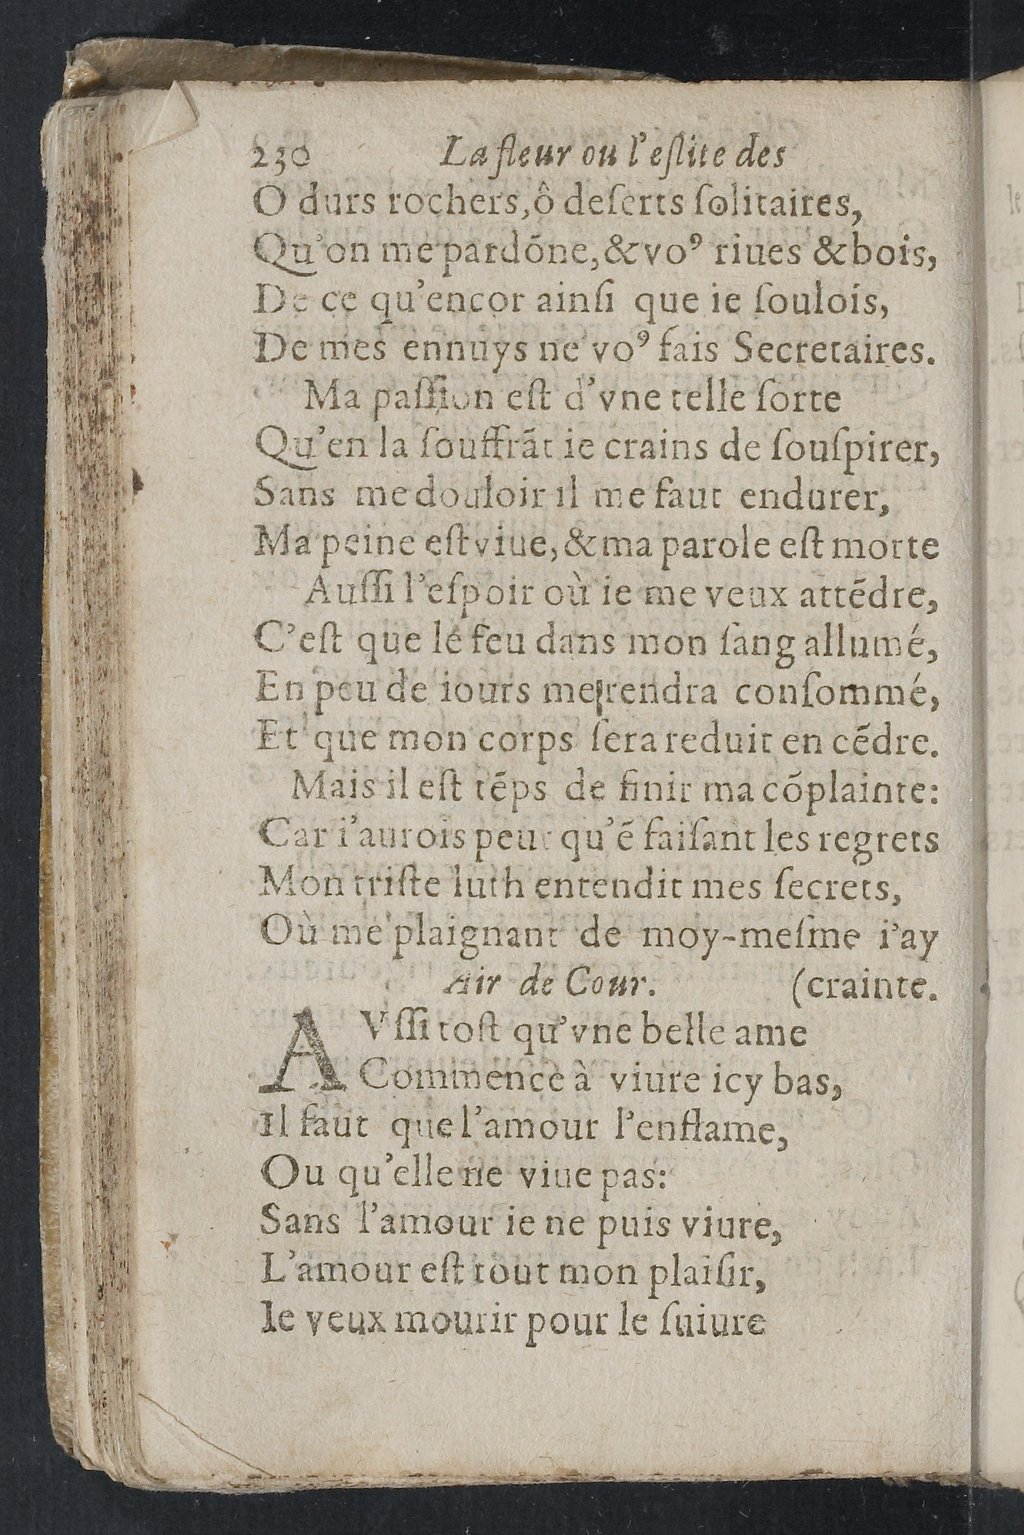 230 La fleur ou l'eſlite des
O durs rochers, ô deſerts ſolitaires,
Qu'on me pardōne, & voꝰ riues & bois,
De ce qu'encor ainſi que ie ſoulois,
De mes ennuys ne voꝰ fais Secretaires.
Ma paſſion eſt d'vne telle ſorte
Qu'en la ſouffrāt ie crains de ſouſpirer,
Sans me douloir il me faut endurer,
Ma peine eſt viue, & ma parole eſt morte
Auſſi l'eſpoir où ie me veux attēdre,
C'eſt que le feu dans mon ſang allumé,
En peu de iours me rendra conſommé,
Et que mon corps ſera reduit en cēdre.
Mais il eſt tēps de finir ma cōplainte:
Car i'aurois peur qu'ē faiſant les regrets
Mon triſte luth entendit mes ſecrets,
Où me plaignant de moy-meſme i'ay
Air de Cour. (crainte.
AVſſi toſt qu'vne belle ame
Commence à viure icy bas,
Il faut que l'amour l'enflame,
Ou qu'elle ne viue pas:
Sans l'amour ie ne puis viure,
L'amour eſt tout mon plaiſir,
Ie veux mourir pour le ſuiure